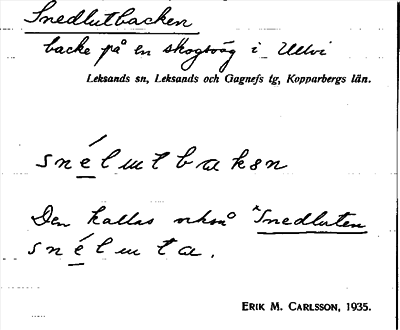 Snedlutbacken
backe på en skogsväg i Ullvi
Leksands sn, Leksands och Gagnefs tg, Kopparbergs län.
snélutbakən
Den kallas också ^Snedluten
snéluta.
ERIK M. CARLSSON, 1935.